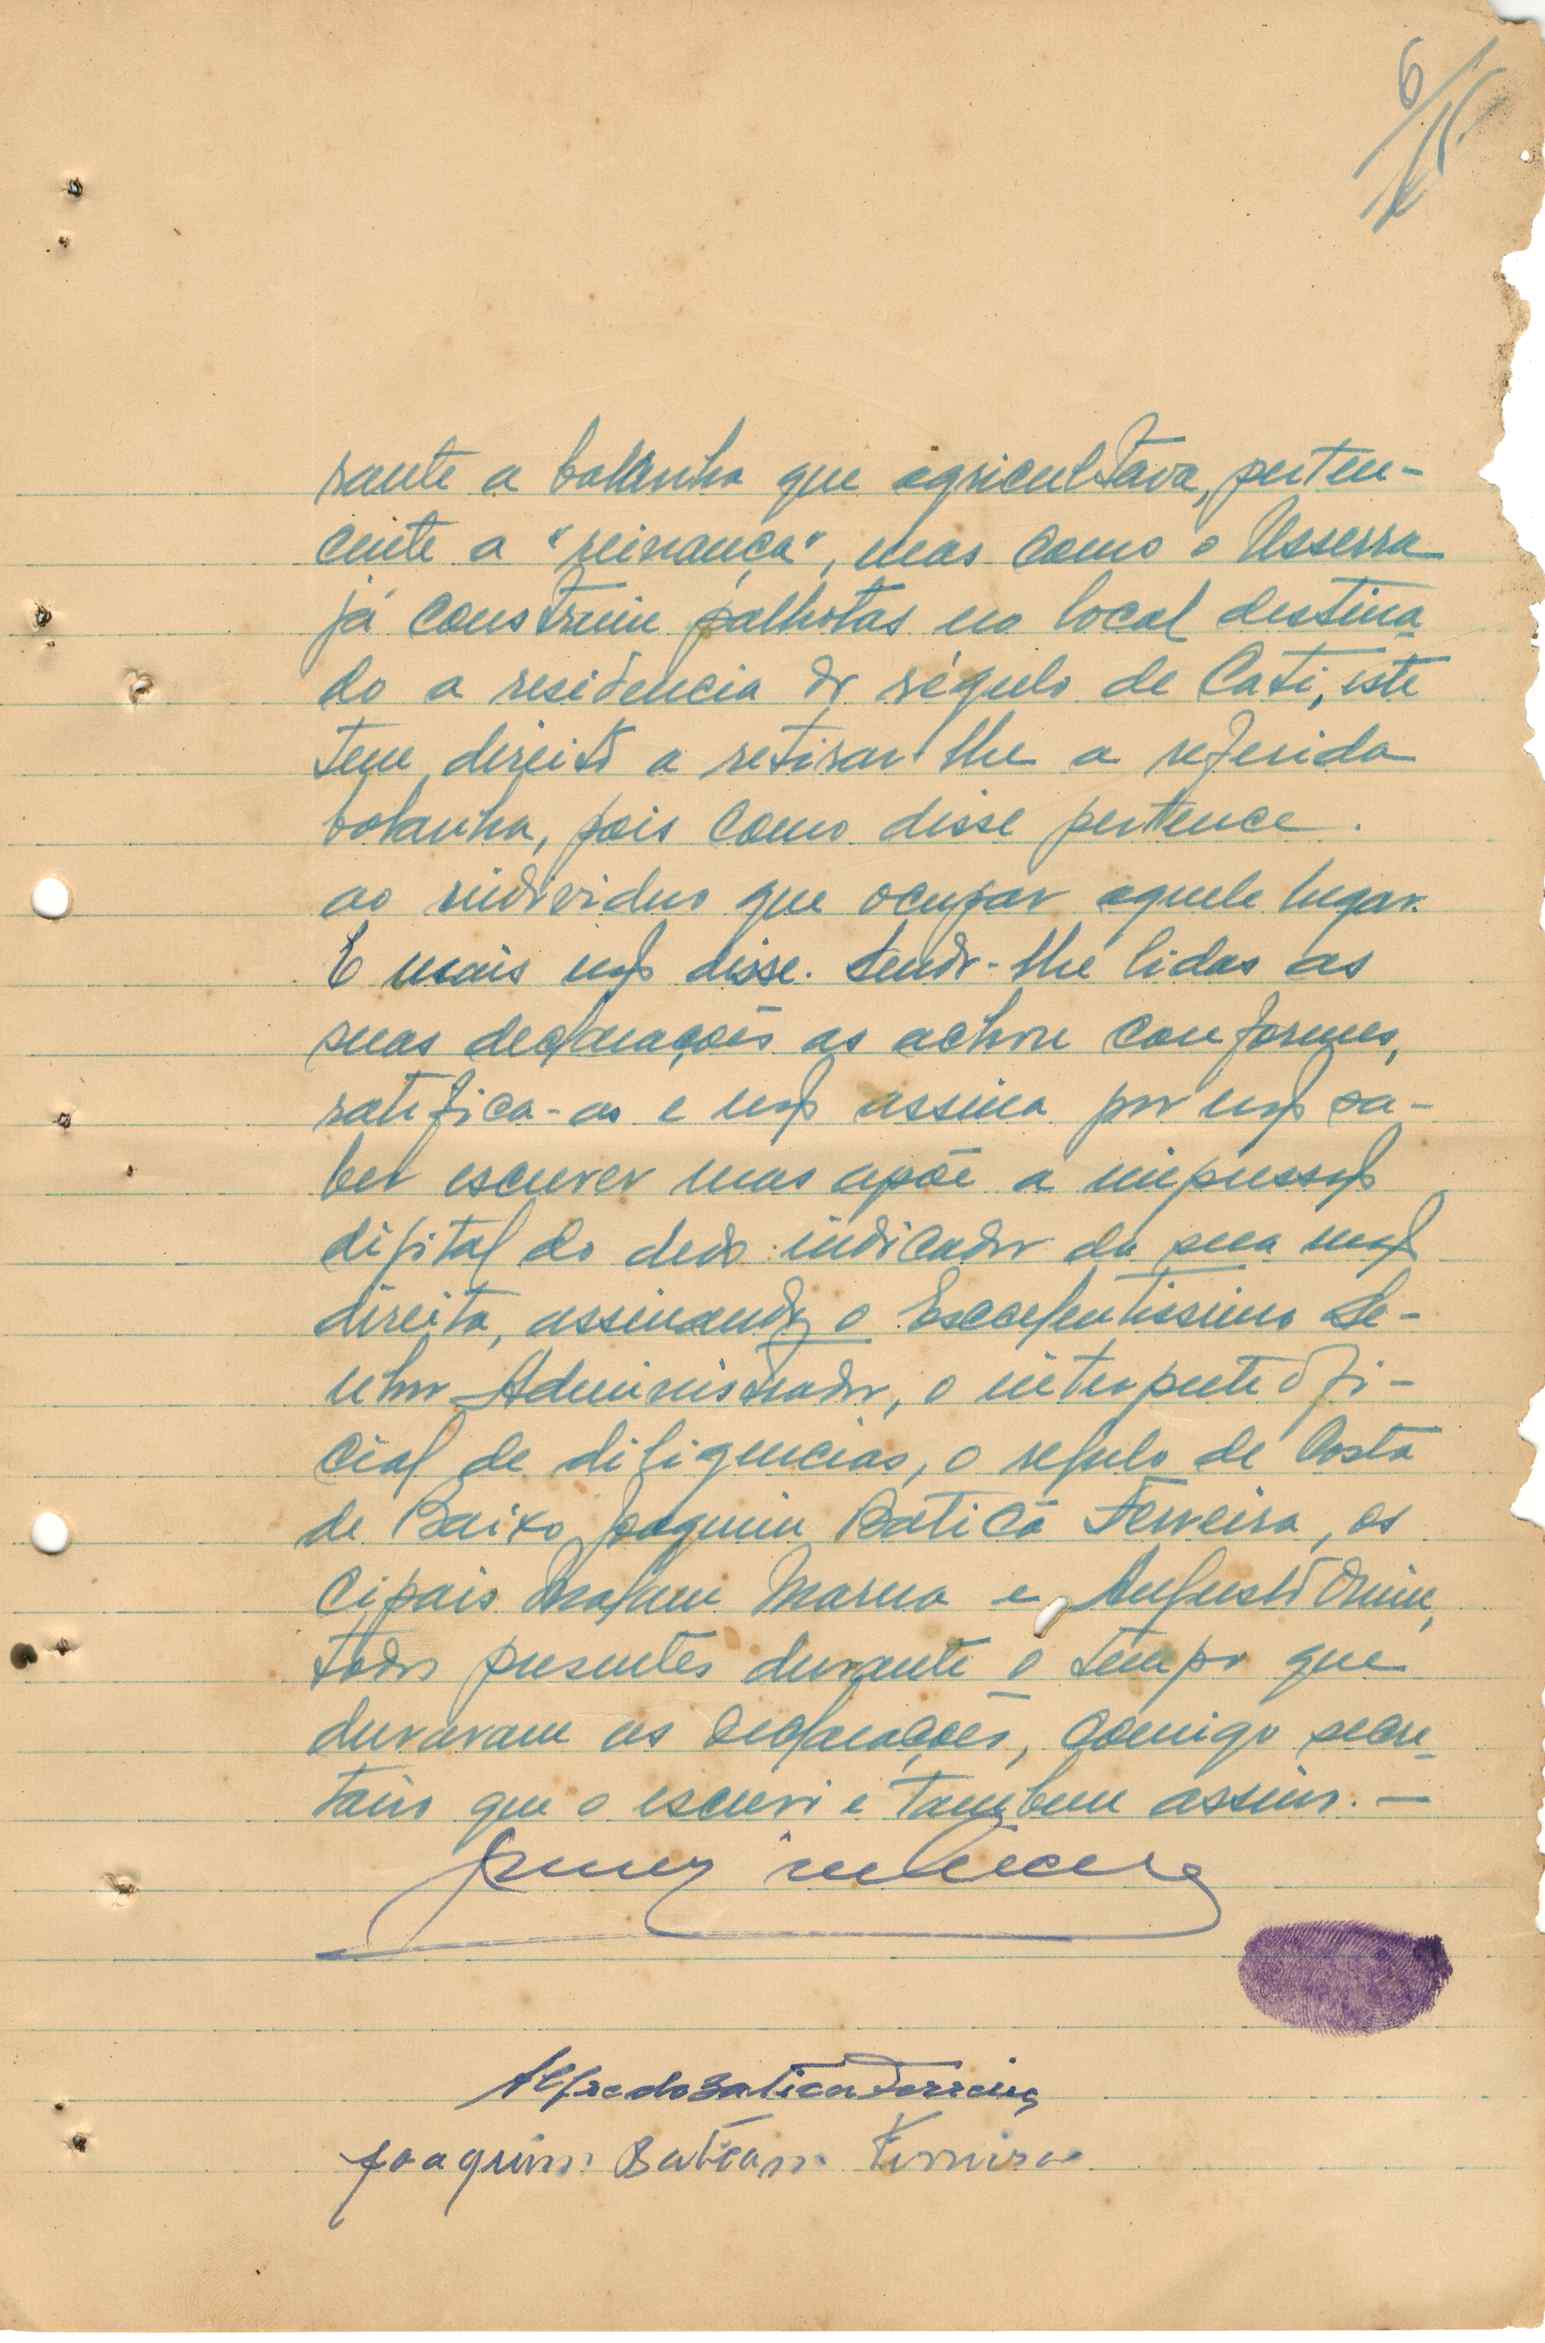 6
rante a bolanha que agricultava, perten-
cente a "reinança", mas como o Usserra
já construiu palhotas no local destina-
do a residência do régulo de Cati, este
tem direito a retirar-lhe a referida
bolanha, pois como disse pertence.
ao individuo que ocupar aquele lugar.
E mais não disse. Sendo-lhe lidas as
suas declarações as achou conformes,
ratifica-as e não assina por não sa-
ber escrever mas apõe a impressão
digital do dedo indicador da sua mão
direita, assinando o Excelentissimo Se-
nhor Administrador, o interprete ofi-
cial de diligencias, o regulo de Costa
de Baixo Joaquim Baticã Ferreira, os
cipais Malam Marna e Augusto
todos presentes durante o tempo que
duraram as declarações, comigo secre-
tário que o escrevi e tambem assino. —
Alfredo Batican Ferreira
Joaquim Batican Ferreira